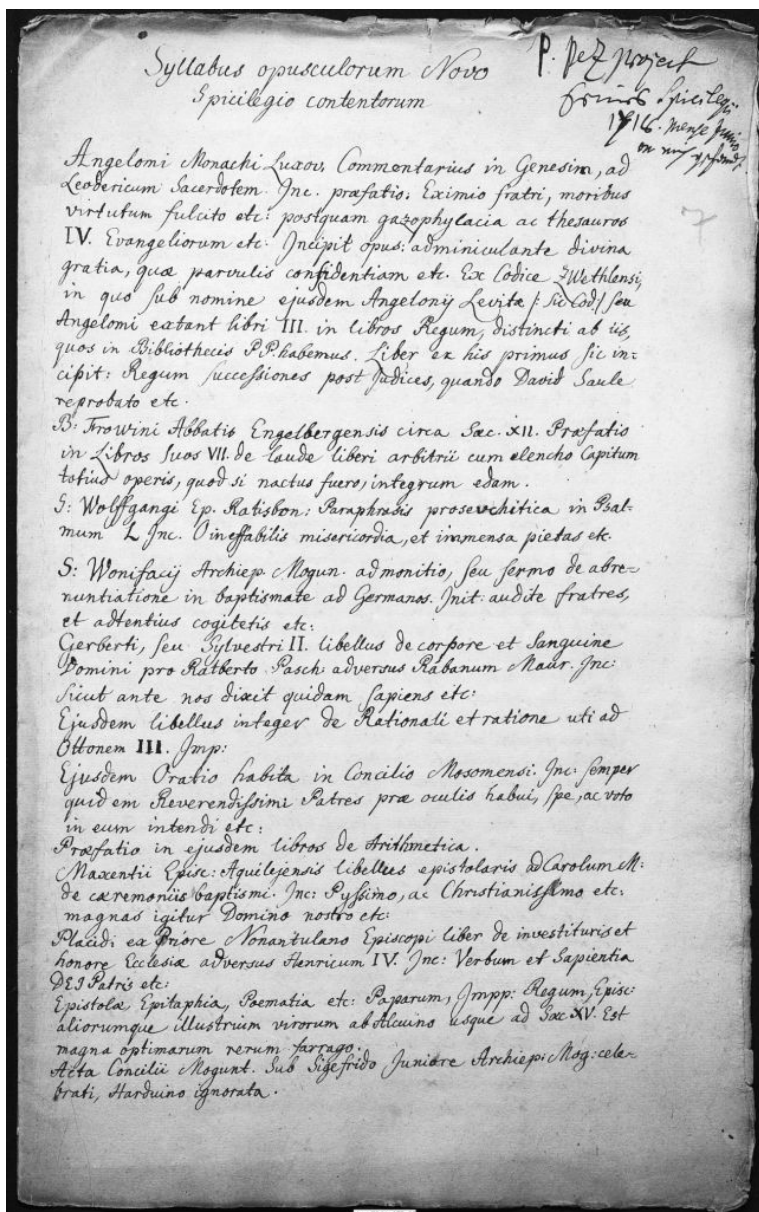 Syllabus opusculorum Novo
Spicilegio contentorum
P. Pez project
seines Spicilegii
1716. mense Junio
an mich
7
Angelomi Monachi Luxov. Commentarius in Genesim, ad
Leodericum Sacerdotem. Inc. præfatio: Eximio fratri, moribus
virtutum fulcito etc: postquam gazophylacia ac thesauros
IV. Evangeliorum etc. Incipit opus: adminiculante divina
gratia, quæ parvulis confidentiam etc. Ex Codice Zwethlensi,
in quo sub nomine ejusdem Angelonij Levitæ /: Sic Cod:/ seu
Angelomi extant libri III. in libros Regum, distincti ab iis,
quos in Bibliothecis PP. habemus. Liber ex his primus sic in=
cipit: Regum successiones post Judices, quando David Saule
reprobato etc.
B: Frowini Abbatis Engelbergensis circa Sæc. XII. Præfatio
in Libros suos VII. de laude liberi arbitrii cum elencho Capitum
totius operis, quod si nactus fuero, integrum edam.
S: Wolffgangi Ep. Ratisbon: Paraphrasis prosevchitica in Psal=
mum L Inc. O ineffabilis misericordia, et immensa pietas etc.
S: Wonifacij Archiep. Mogun. admonitio, seu sermo de abre=
nuntiatione in baptismate ad Germanos. Init: audite fratres,
et adtentius cogitetis etc:
Gerberti, seu Sylvestri II. libellus de corpore et Sanguine
Domini pro Ratberto Pasch: adversus Rabanum Maur. Inc:
Sicut ante nos dixit quidam sapiens etc:
Ejusdem libellus integer de Rationali et ratione uti ad
Ottonem III. Imp:
Ejusdem Oratio habita in Concilio Mosomensi. Inc: semper
quidem Reverendissimi Patres præ oculis habui, spe, ac voto
in eum intendi etc:
Præfatio in ejusdem libros de Arithmetica.
Maxentii Episc: Aquilejensis libellus epistolaris ad Carolum M:
de cæremoniis baptismi. Inc: Pyssimo, ac Christianissimo etc.
magnas igitur Domino nostro etc:
Placidi ex Priore Nonantulano Episcopi liber de investituris et
honore Ecclesiæ adversus Henricum IV. Inc: Verbum et Sapientia
DEI Patris etc:
Epistolæ Epitaphia, Poematia etc: Paparum, Impp: Regum, Episc:
aliorumque illustrium virorum ab Alcuino usque ad Sæc XV. Est
magna optimarum rerum farrago.
Acta Concilii Mogunt. Sub Sigefrido Juniore Archiep: Mog: cele=
brati, Harduino ignorata.